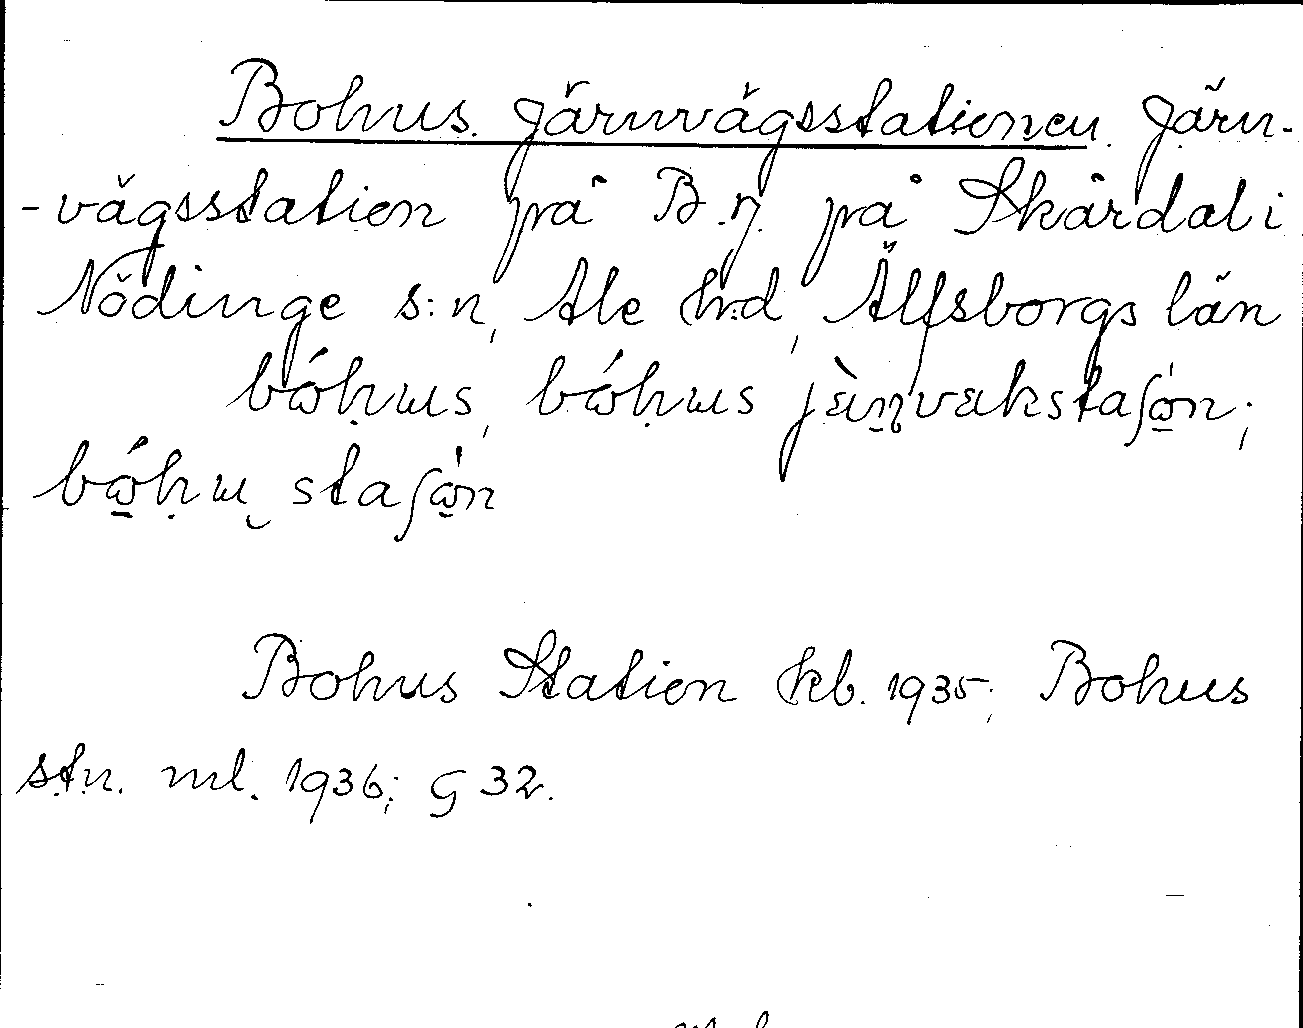 Bohus. Järnvägsstationen. Järn-
-vägsstation på B.ʒ. på Skårdal i
Nödinge s:n, Ale h:d, Älfsborgs län
bóhus, bóhus jàṉvakstaʃón;
bóhu staʃón
Bohus Station kb. 1935; Bohus
stn. ml. 1936; G 32.